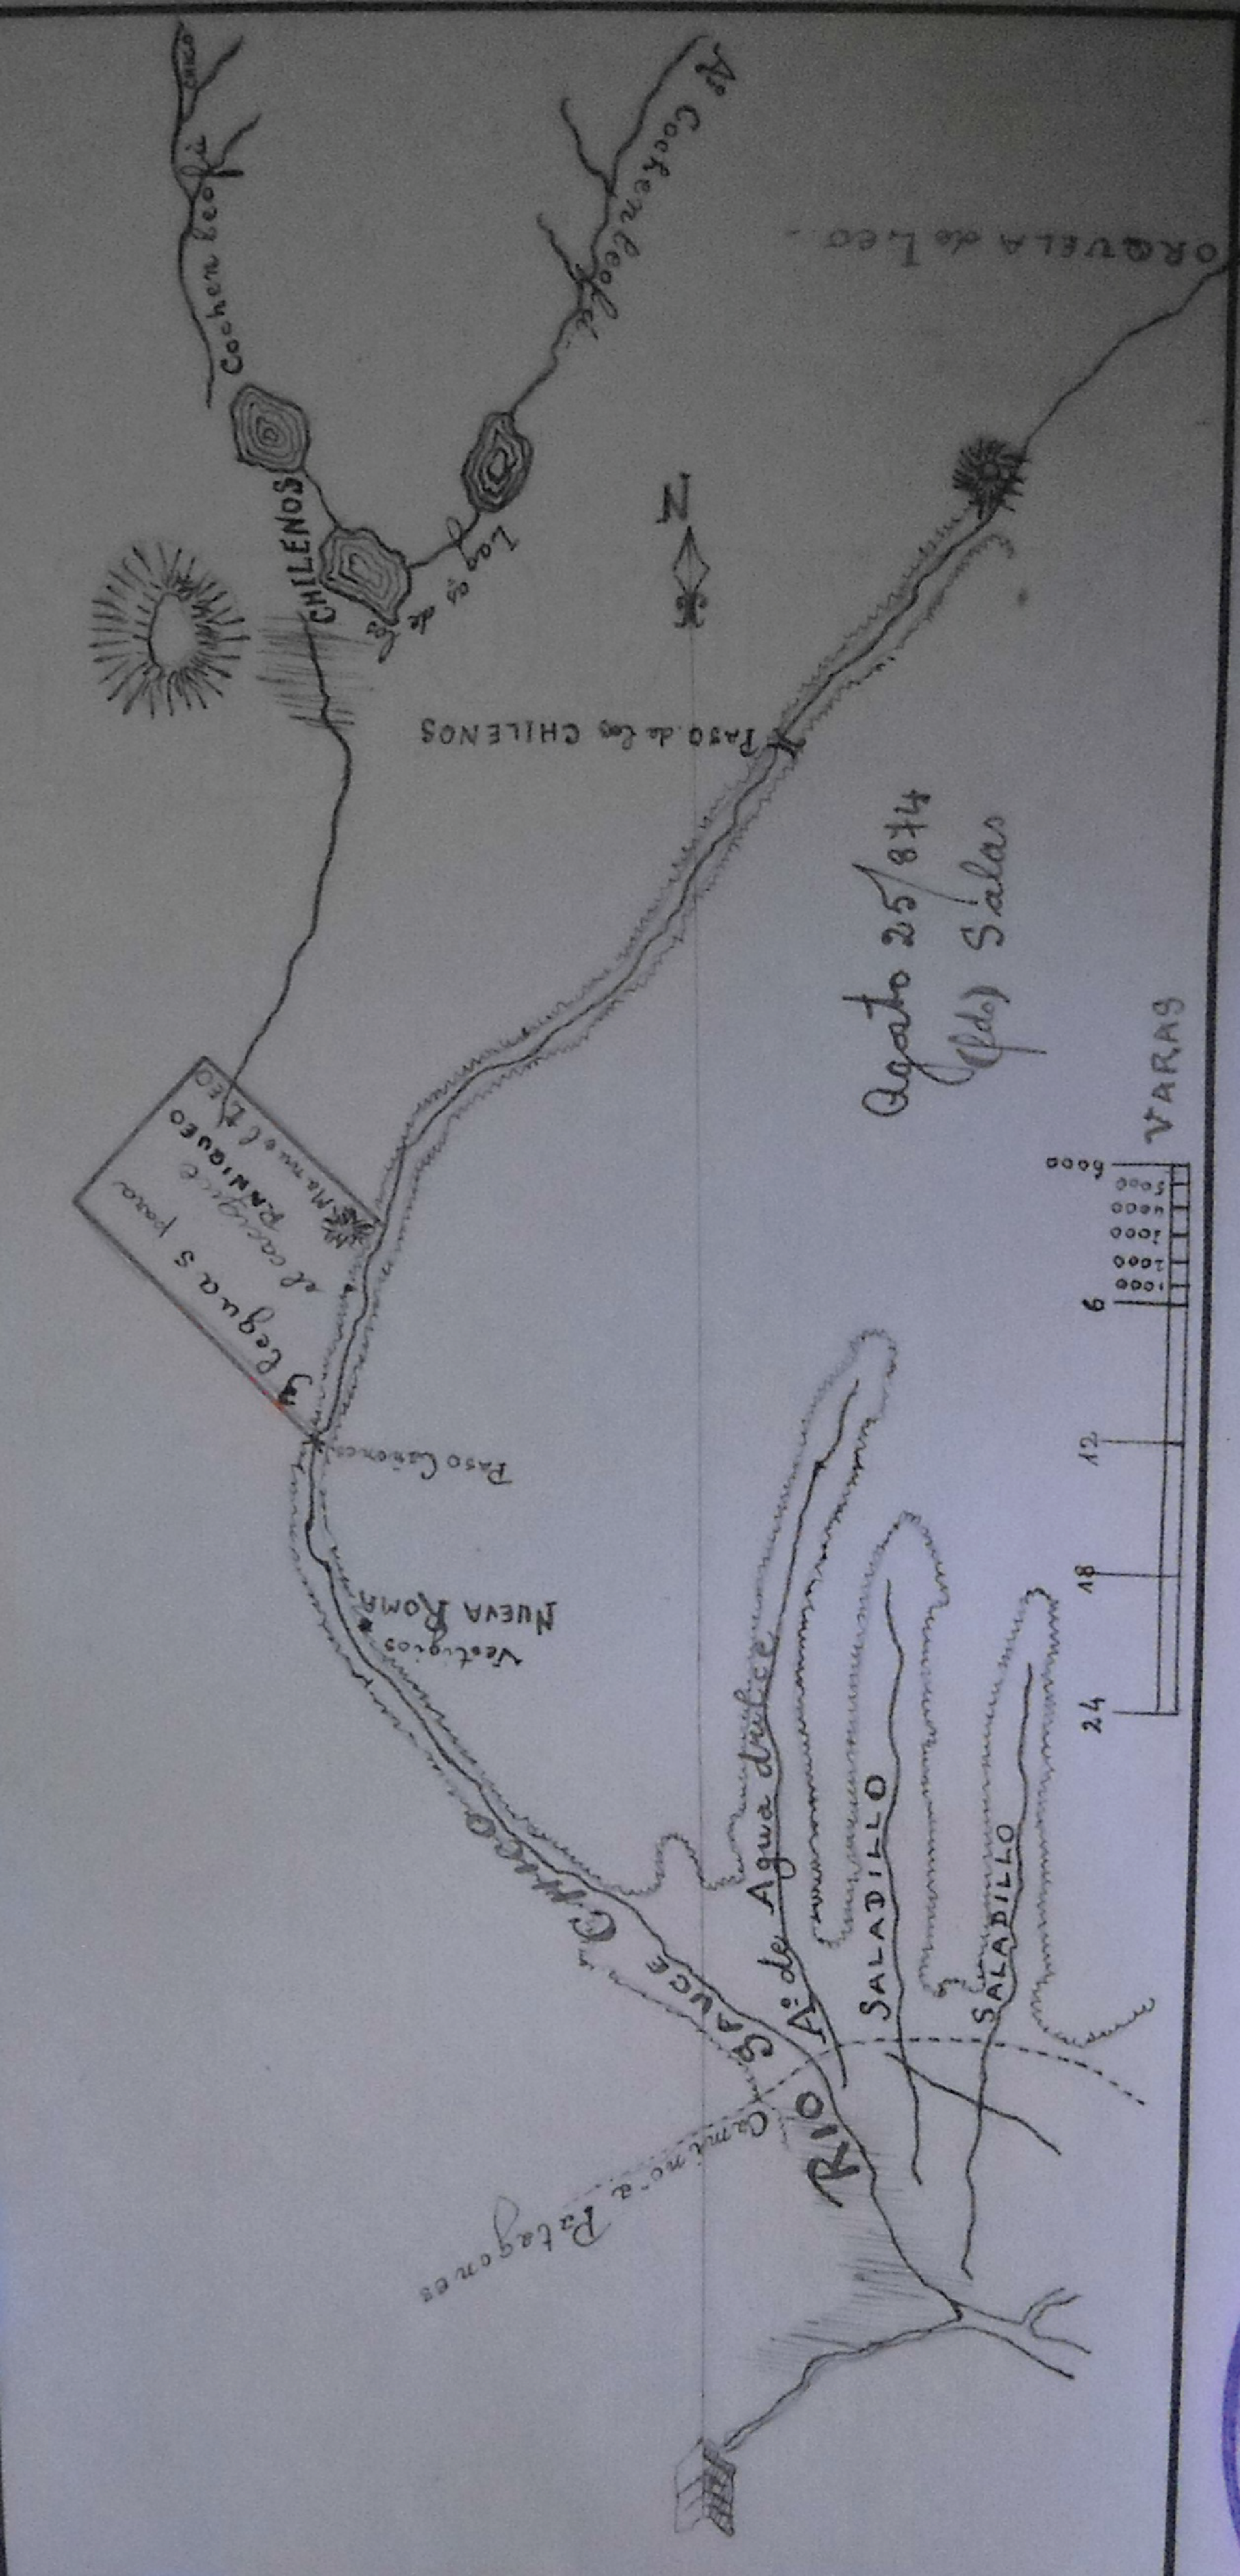 CHICO
Cochen Leofú
Aº Cochenleofú.
ORQUELA de LEO
CHILENOS
Lagas de los
N
PASO de los CHILENOS
Agosto 25/874
(fdo) Salas
3 leguas para
el cacique
RANIQUEO
Manuel LEO
Paso Cañones
Vestigios
NUEVA ROMA
RIO SAUCE CHICO
Aº de Agua dulce
SALADILLO
SALADILLO
Camino a Patagones
VARAS
24 18 12 6 1000 2000 3000 4000 5000 6000